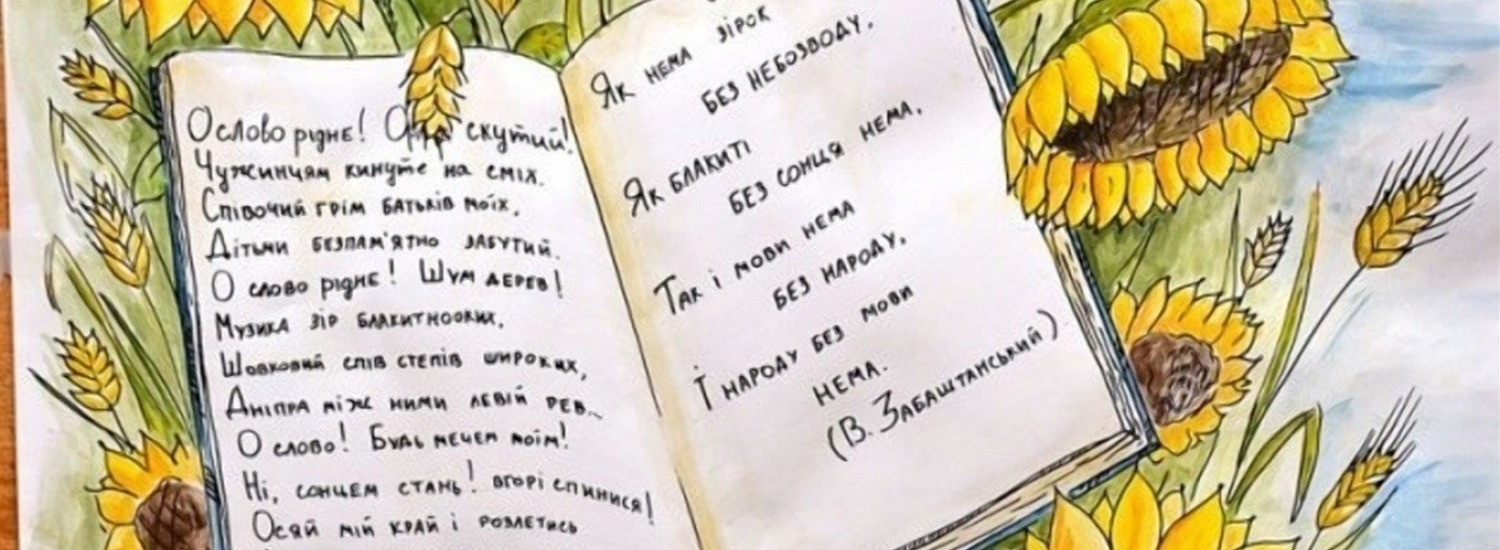 О слово рідне! скутий!
Чужинцям кинуте на сміх.
Співочий грім батьків моїх,
Дітьми безпам'ятно забутий.
О слово рідне! Шум дерев!
Музика зір блакитнооких,
Шовковий спів степів широких,
Дніпра між ними левій рев...
О слово! Будь мечем моїм!
Ні, сонцем стань! вгорі спинися!
Осяй мій край і розлетись
Як нема зірок
без небозводу.
Як блакиті
без сонця нема.
Так і мови нема
без народу.
І народу без мови
нема.
(В. Забаштанський)